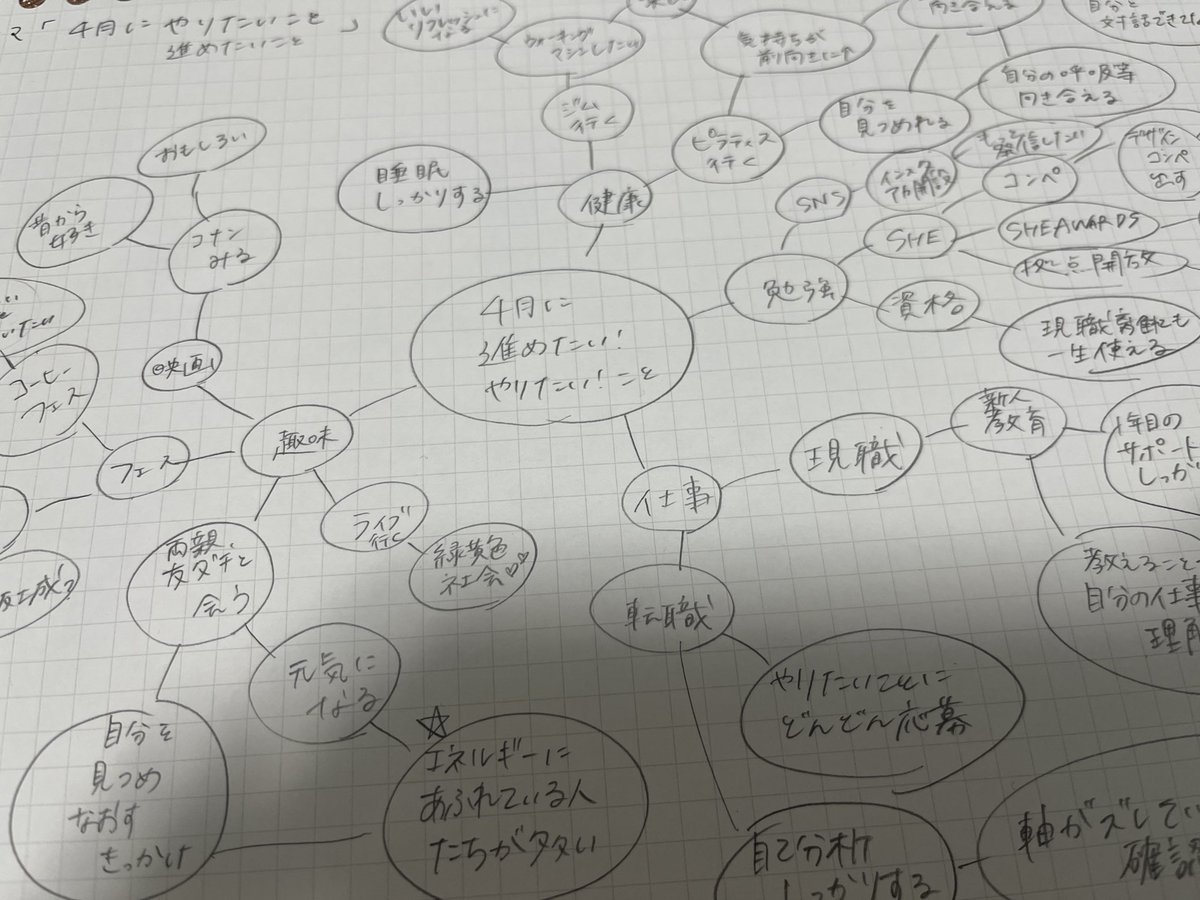 「4月にやりたいこと
進めたいこと」
いい
リフレッシュに
なる
ウォーキング
マシンしたい
気持ちが
前向きに↑
向き合える
自分と
対話できて
ジム
行く
ピラティス
行く
自分を
見つめれる
自分の呼吸等
向き合える
睡眠
しっかりする
健康
おもしろい
昔から
好き
コナン
みる
映画
SNS
インスタ
開設
発信したい
コンペ
デザイン
コンペ
出す
SHE
SHEAWARDS
拠点開放
勉強
資格
現職離れても
一生使える
4月に
進めたい!
やりたい!こと
コーヒー
フェス
フェス
趣味
ライブ
行く
緑黄色
社会♡♡
両親、
友ダチと
会う
元気に
なる
自分を
見つめ
なおす
きっかけ
☆
エネルギーに
あふれている人
たちが多い
仕事
現職
新人
教育
1年目の
サポート
しっか
教えること
自分の仕事
理解
転職
やりたいことに
どんどん応募
自己分析
しっかりする
軸がズレてい
確認